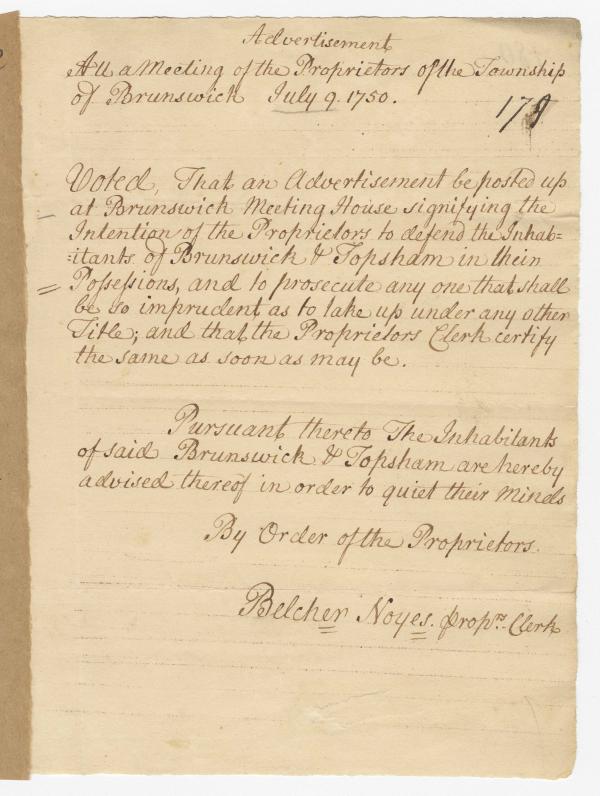 Advertisement
Att a Meeting of the Proprietors of the Township
of Brunswick July 9. 1750.
Voted, That an Advertisement be posted up
at Brunswick Meeting House signifying the
Intention of the Proprietors to defend the Inhab=
=itants of Brunswick & Topsham in their
Possessions, and to prosecute any one that shall
be so imprudent as to take up under any other
Title; and that the Proprietors Clerk certify
the same as soon as may be.
Pursuant thereto The Inhabitants
of said Brunswick & Topsham are hereby
advised thereof in order to quiet their Minds
By Order of the Proprietors.
Belcher Noyes. Proprs. Clerk